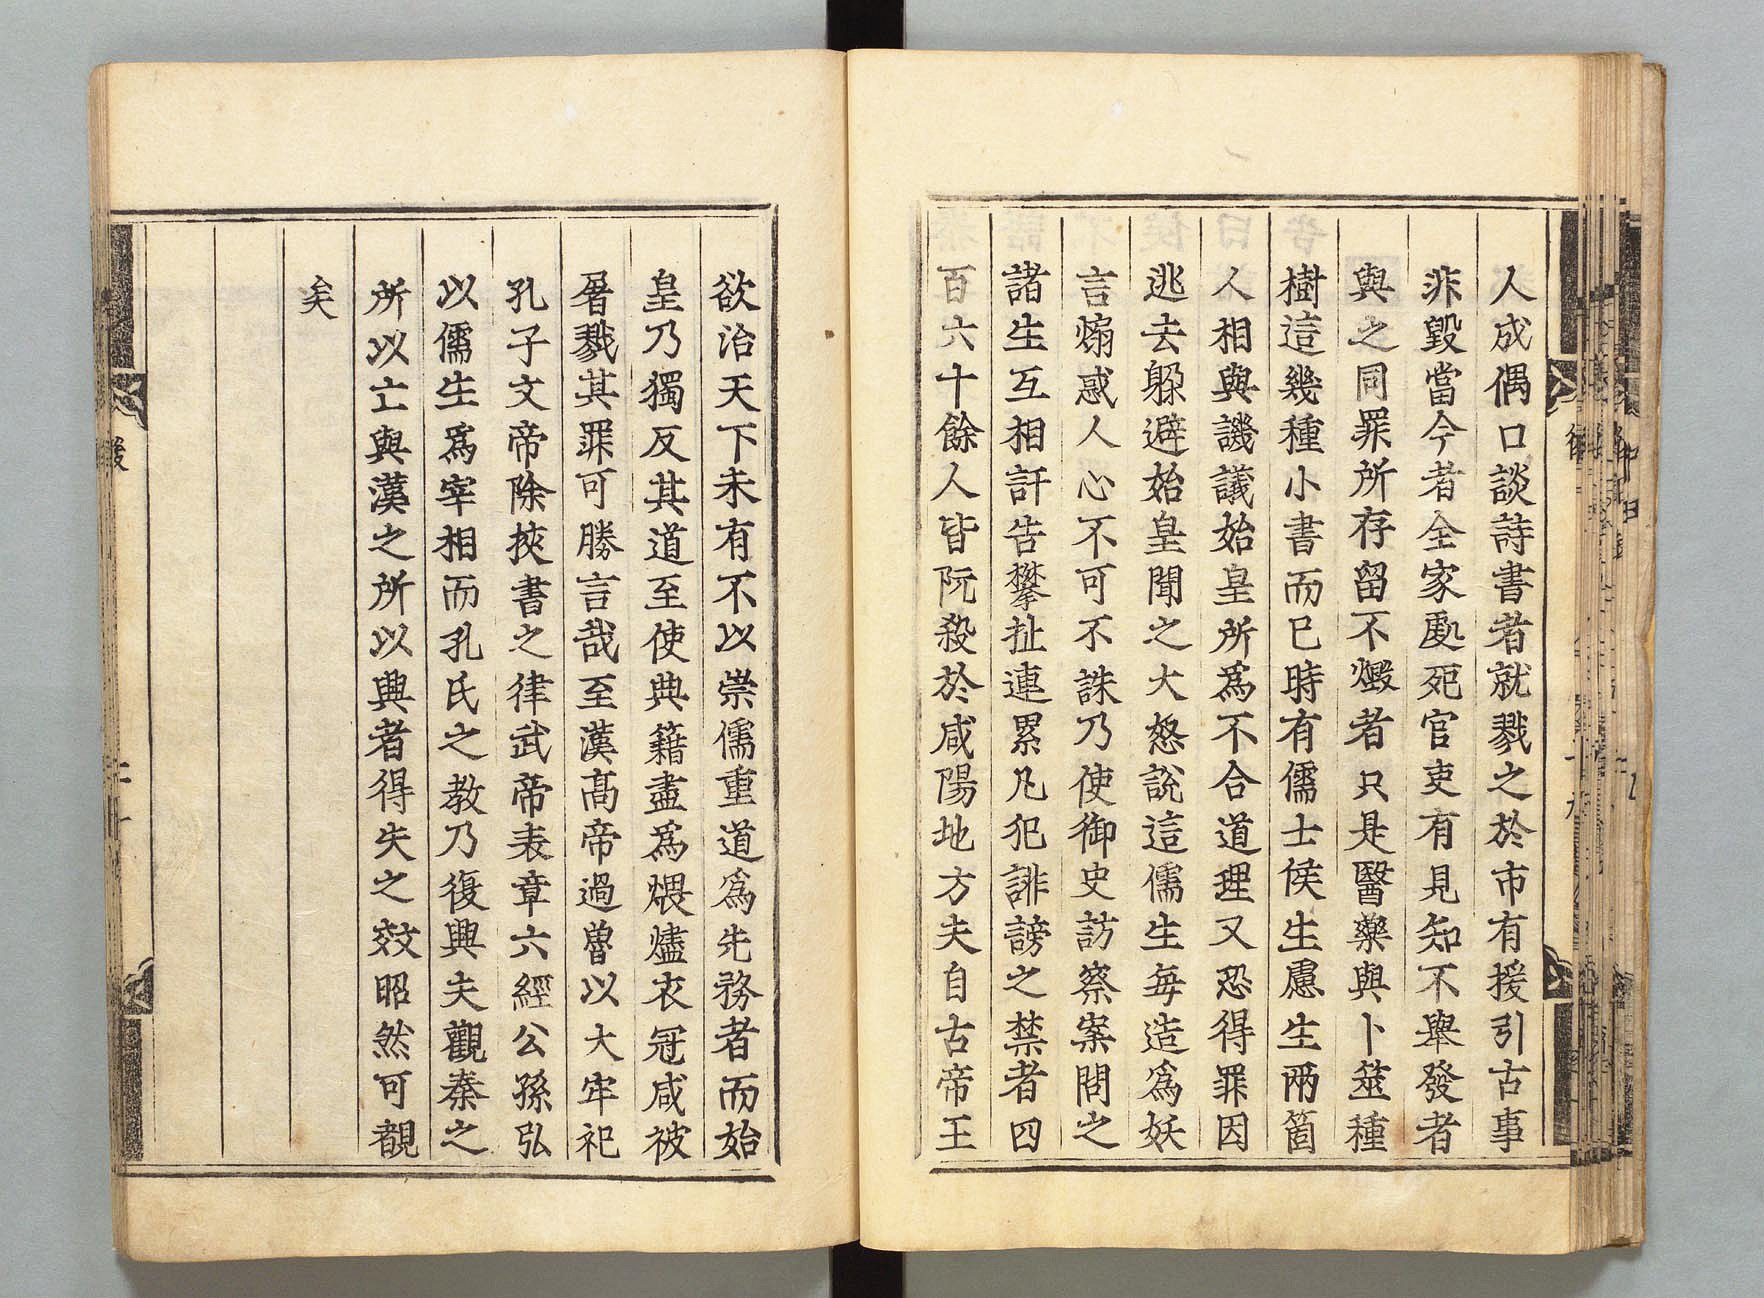 人成偶口談詩書者就戮之於市有援引古事
非毀當今者全家處死官吏有見知不舉發者
與之同罪所存留不燬者只是醫藥與卜筮種
樹這幾種小書而已時有儒士侯生盧生兩箇
人相與譏議始皇所爲不合道理又恐得罪因
逃去躱避始皇聞之大怒說這儒生每造爲妖
言煽惑人心不可不誅乃使御史訪察案問之
諸生互相訐告攀扯連累凡犯誹謗之禁者四
百六十餘人皆阬殺於咸陽地方夫自古帝王
欲治天下未有不以崇儒重道爲先務者而始
皇乃獨反其道至使典籍盡爲煨燼衣冠咸被
屠戮其罪可勝言哉至漢高帝過魯以大牢祀
孔子文帝除挾書之律武帝表章六經公孫弘
以儒生爲宰相而孔氏之教乃復興夫觀秦之
所以亡與漢之所以興者得失之效昭然可覩
矣